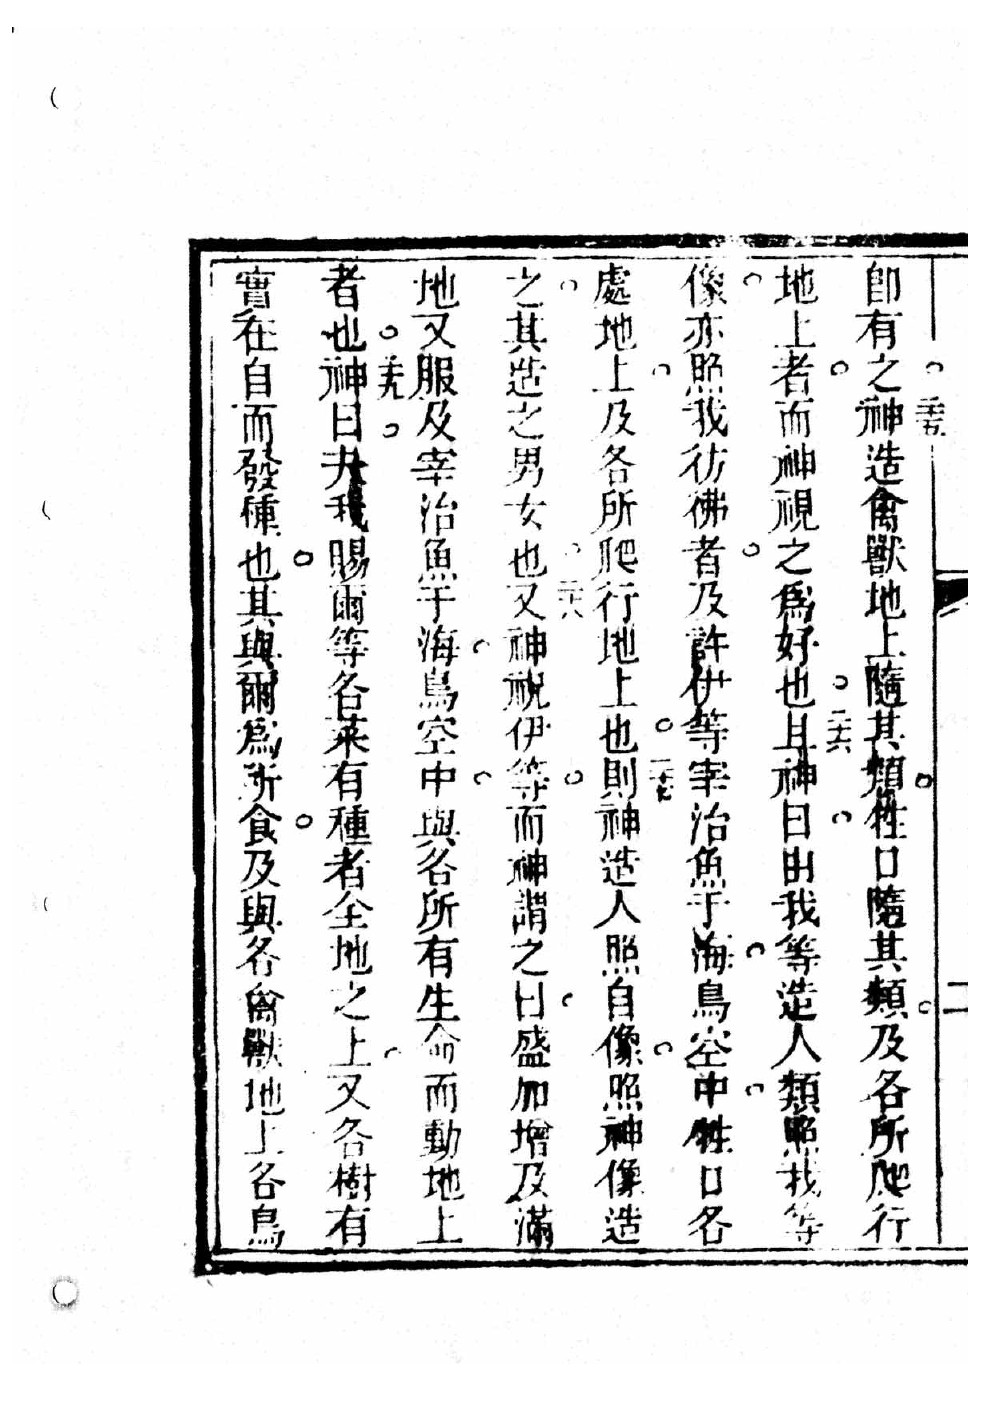 即有之神造禽獸地上隨其類牲口隨其類及各所爬行
二十五
地上者而神視之爲好也且神曰由我等造人類照我等
二十六
像亦照我彷彿者及許伊等宰治魚于海鳥空中牲口各
處地上及各所爬行地上也則神造人照自像照神像造
二十七
之其造之男女也又神視伊等而神謂之曰盛加增及滿
二十八
地又服及宰治魚于海鳥空中與各所有生命而動地上
者也神曰夫我賜爾等各菜有種者全地之上又各樹有
二十九
實在自而發種也其與爾爲所食及與各禽獸地上各鳥
二